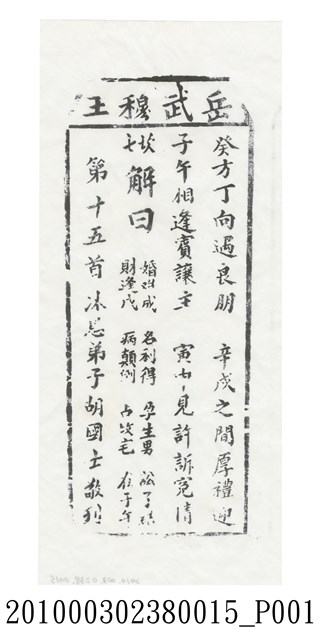 岳武穆王
癸方丁向遇良朋 辛戌之間厚禮迎
子午相逢賓讓主 寅
見許訴冤情
解曰
婚姻成 名利得 孕生男
財逢戌 病顛倒 占
在子午
第十五首沐恩弟子胡國士敬刊
201000302380015_P001